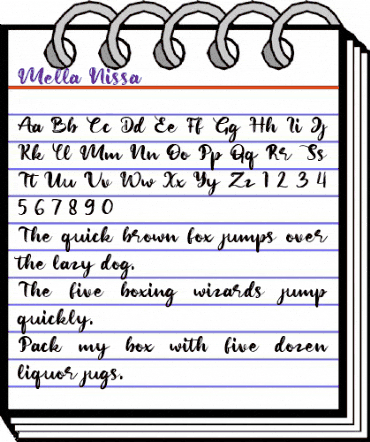 Mella Nissa
Aa Bb Cc Dd Ee Ff Gg Hh Ii Jj
Kk Ll Mm Nn Oo Pp Qq Rr Ss
Tt Uu Vv Ww Xx Yy Zz 1 2 3 4
5 6 7 8 9 0
The quick brown fox jumps over
the lazy dog.
The five boxing wizards jump
quickly.
Pack my box with five dozen
liquor jugs.